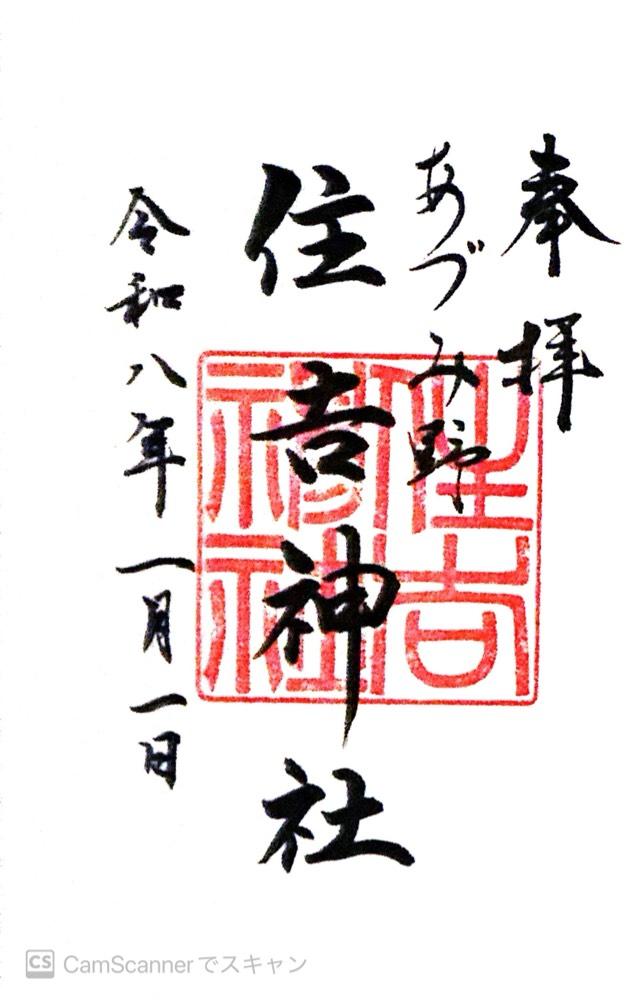 奉拝
あづみ野
住吉神社
令和八年一月一日
住吉
神社
CS CamScannerでスキャン